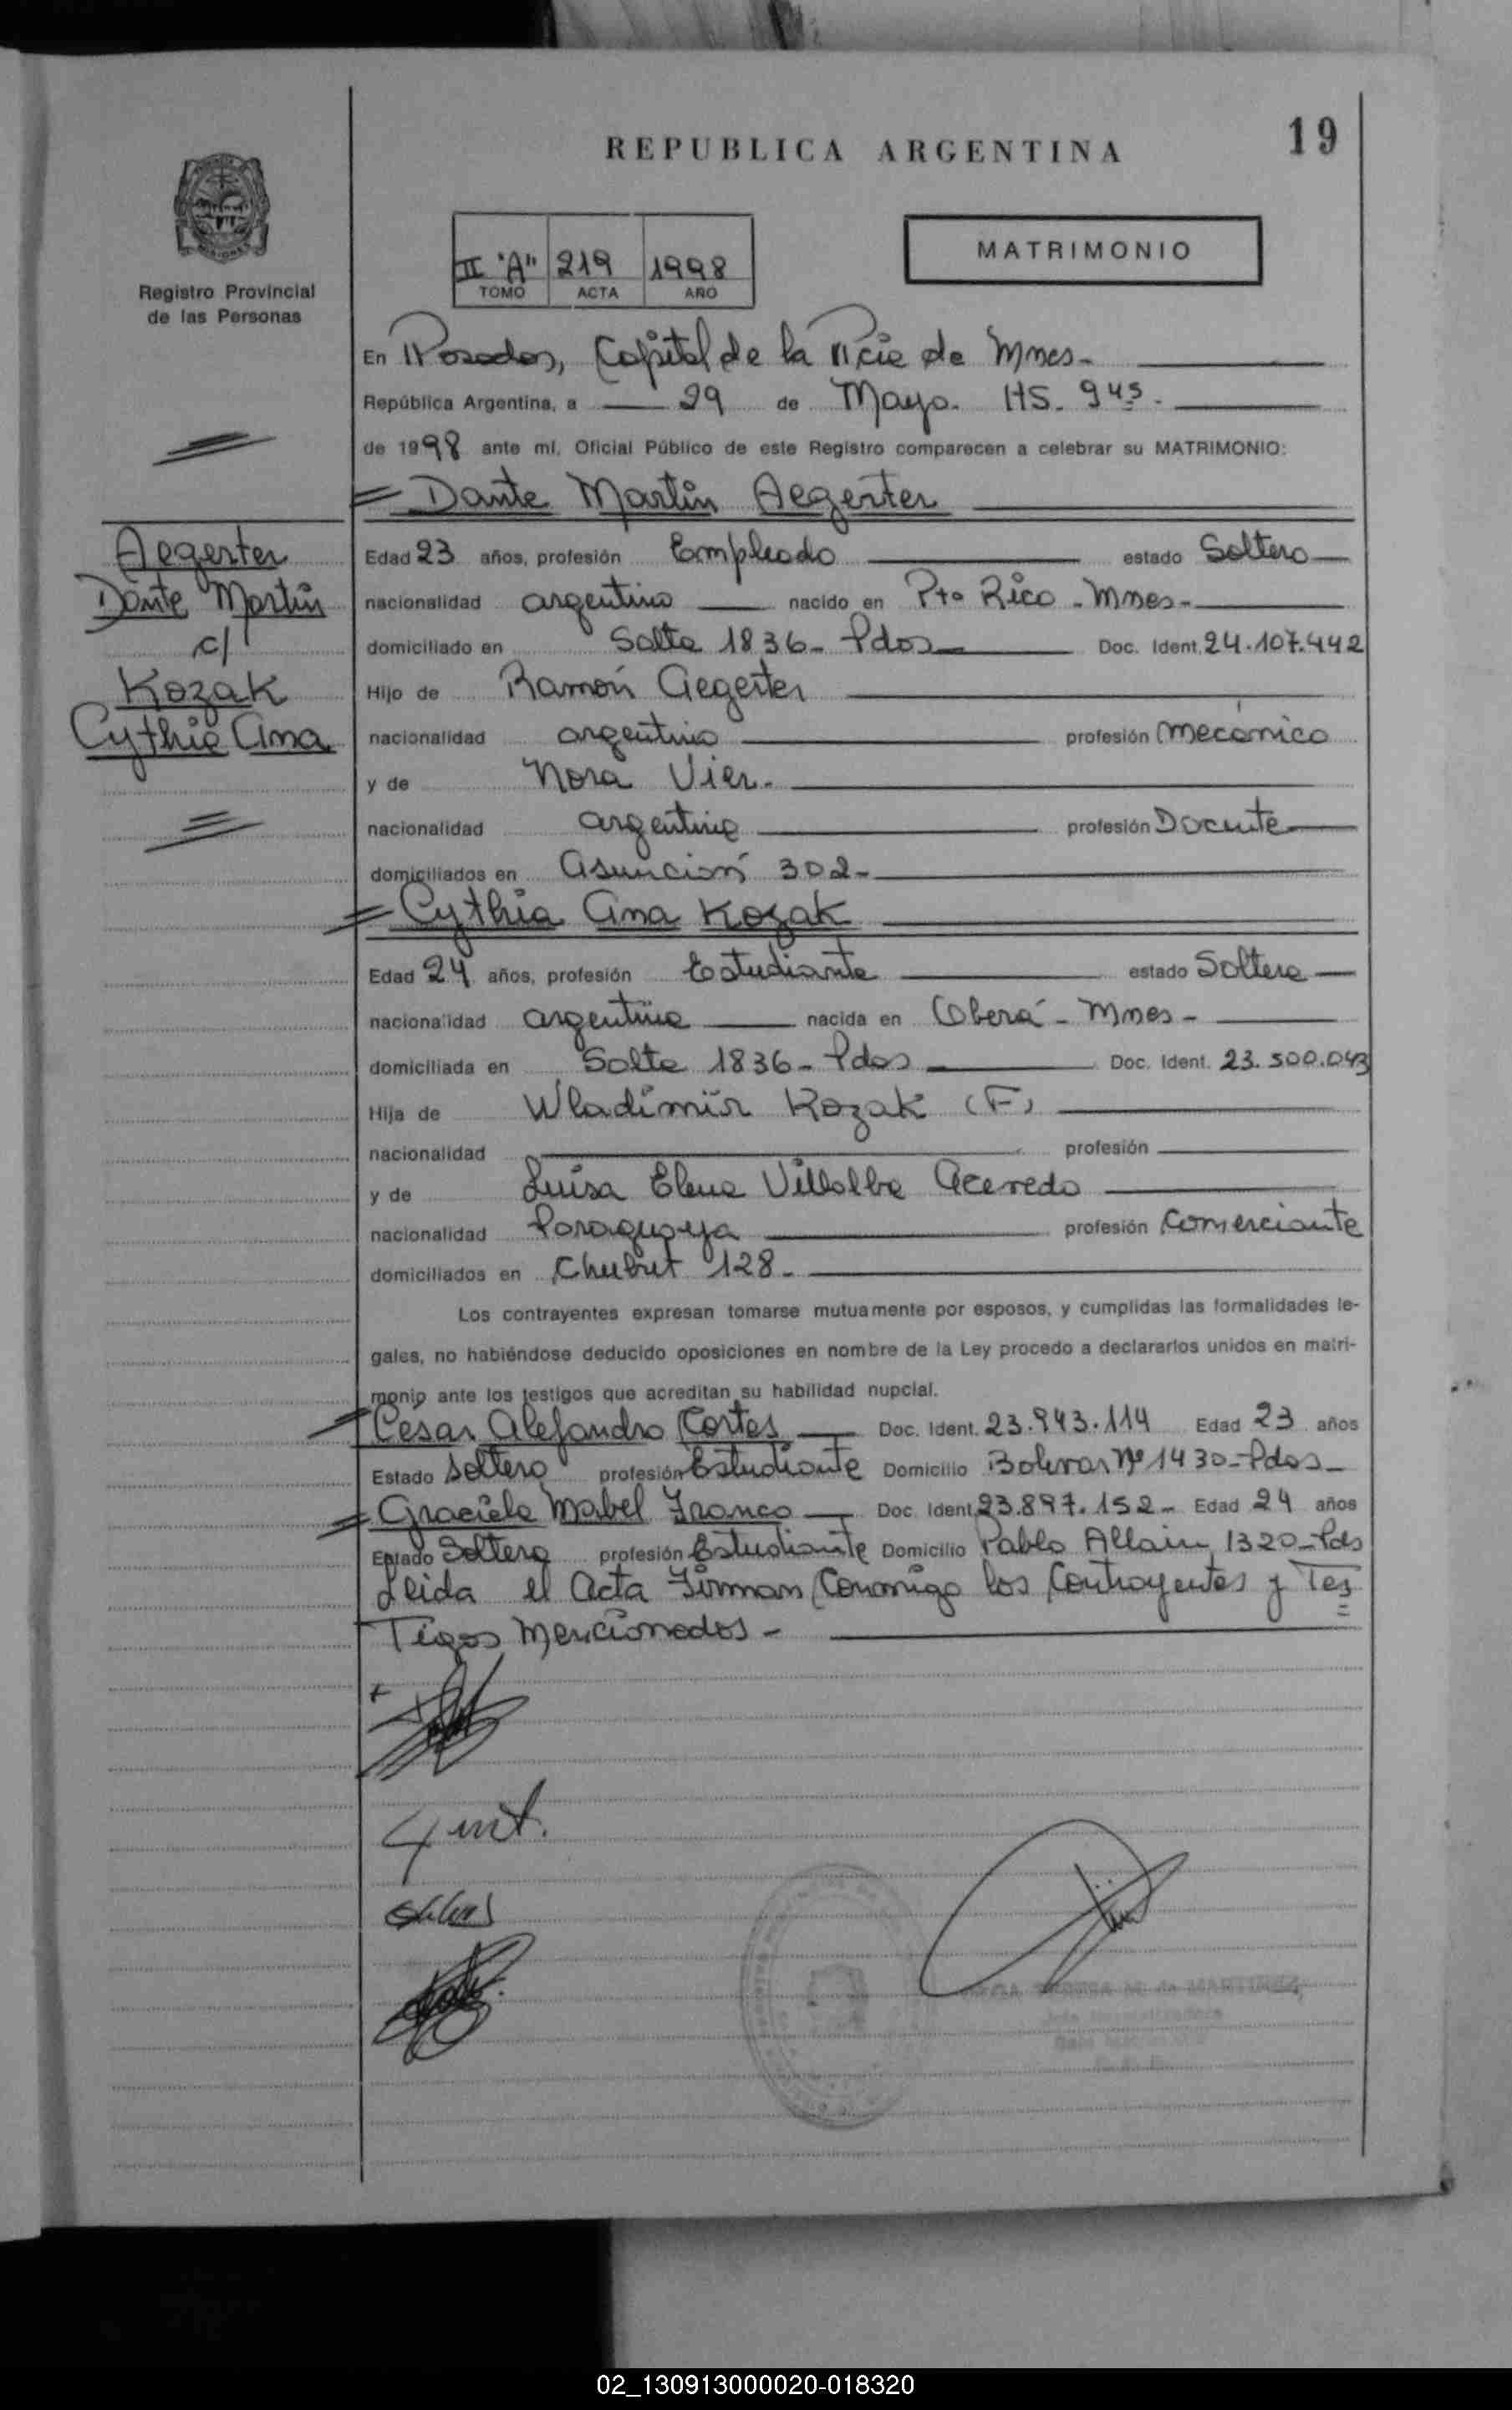 REPUBLICA ARGENTINA
19
Registro Provincial
de las Personas
II "A" 219 1998
TOMO ACTA AÑO
MATRIMONIO
En Posadas, Capital de la Pcie de Mnes-
República Argentina, a 29 de Mayo. HS. 9 45.
de 1998 ante mí, Oficial Público de este Registro comparecen a celebrar su MATRIMONIO:
Dante Martin Aegerter
Edad 23 años, profesión Empleado estado Soltero
nacionalidad argentino nacido en Pto Rico - Mnes-
domiciliado en Salta 1836- Pdas Doc. Ident. 24.107.442
Hijo de Ramón Aegerter
nacionalidad argentino profesión mecánico
y de Nora Vier.
nacionalidad argentina profesión Docente
domiciliados en Asunción 302-
Cythia Ana Kozak
Edad 24 años, profesión Estudiante estado Soltera
nacionalidad argentina nacida en Oberá - Mnes-
domiciliada en Salta 1836- Pdas Doc. Ident. 23.500.043
Hija de Wladimir Kozak (F)
nacionalidad profesión
y de Luisa Elena Villalba Acevedo
nacionalidad Paraguaya profesión Comerciante
domiciliados en Chubut 128-
Los contrayentes expresan tomarse mutuamente por esposos, y cumplidas las formalidades le-
gales, no habiéndose deducido oposiciones en nombre de la Ley procedo a declararlos unidos en matri-
monio ante los testigos que acreditan su habilidad nupcial.
César Alejandro Cortes Doc. Ident. 23.943.114 Edad 23 años
Estado Soltero profesión Estudiante Domicilio Bolivar Nº 1430-Pdas-
Graciela Mabel Franco Doc. Ident. 23.897.152- Edad 24 años
Estado Soltera profesión Estudiante Domicilio Pablo Allain 1320-Pds
Leida el Acta Firman Conmigo los Contrayentes y Tes
Tigos Mencionados-
Aegerter
Dante Martin
c/
Kozak
Cythia Ana
02_130913000020-018320